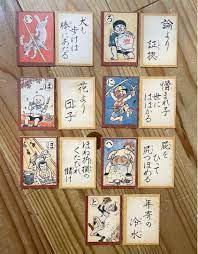 い
犬も
歩けば
棒にあたる
ろ
論より
証拠
は
花より
団子
に
憎まれ子
世に
はばかる
ほ
ほね折損の
くたびれ
儲け
へ
屁を
ひって
尻つぼめる
と
年寄の
冷水